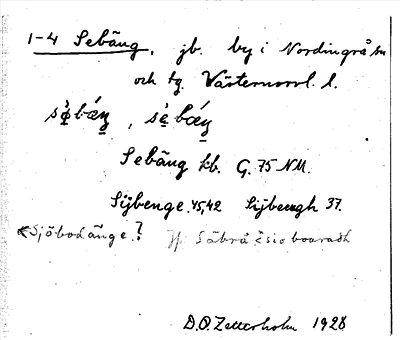 1-4 Sebäng, jb. by i Nordingrå sn
och tg. Västernorrl. l.
sè̤bǽŋ, sè̤bæŋ
Sebäng kb. G. 75 NM.
Sijbenge. 45,42 Sijbengh 37.
<Sjöbodänge? Jfr Säbrå < sioboaradh
D.O. Zetterholm 1928